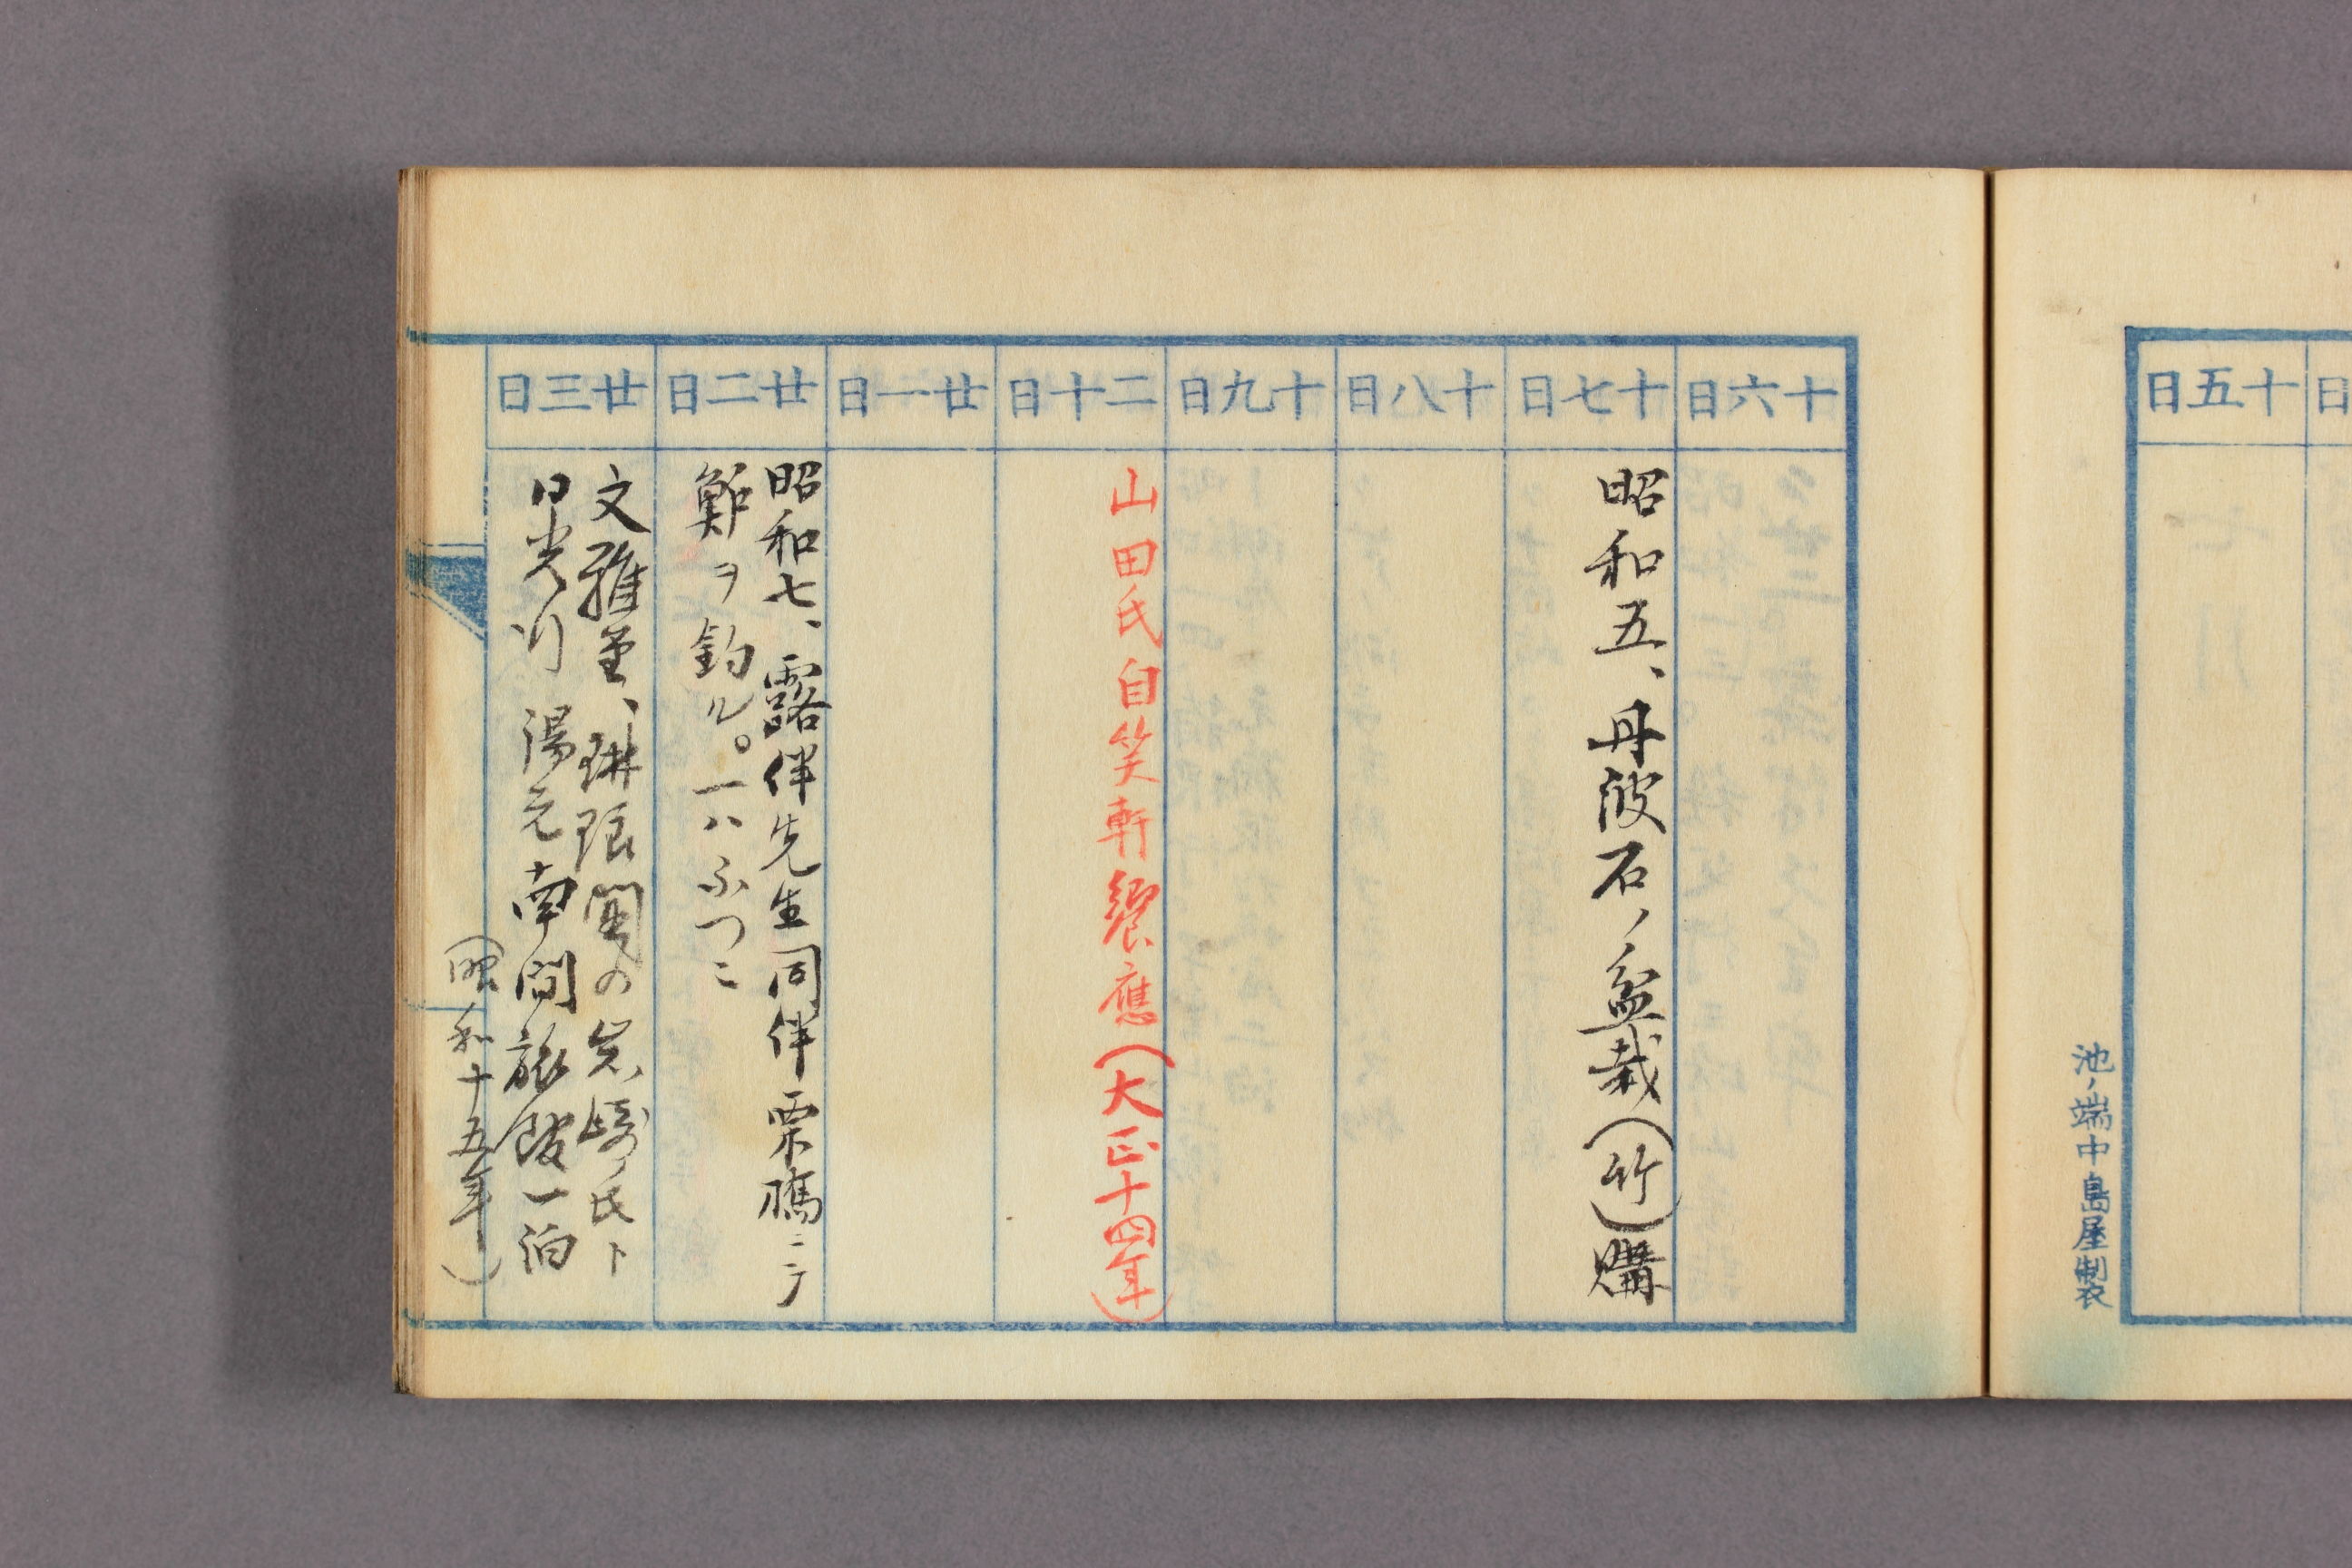 十五日
日
池ノ端中島屋製
十六日
十七日
昭和五、丹波石ノ盆栽(竹)購
十八日
十九日
二十日
山田氏自笑軒饗應(大正十四年)
廿一日
廿二日
昭和七、露伴先生同伴栗橋ニテ
鮓ヲ釣ル。一ハふつこ
廿三日
文雅堂、琳琅閣の岩崎氏ト
日光行 湯元南間旅館一泊
(昭和十五年)